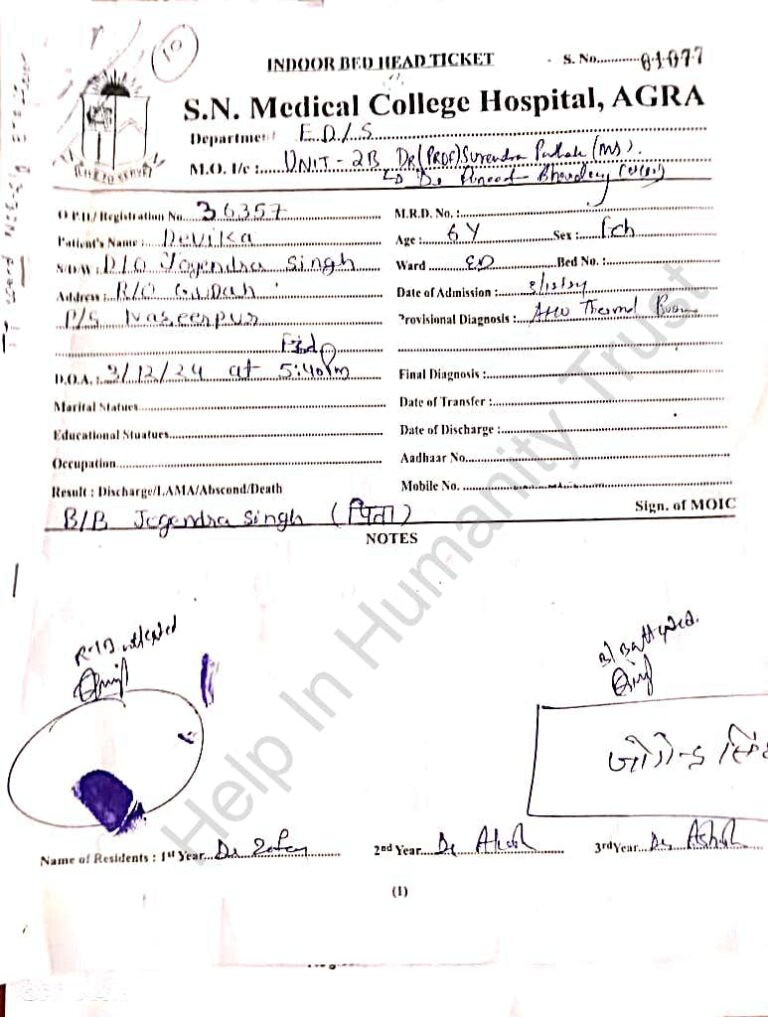 10
INDOOR BED HEAD TICKET S. No. 01077
S.N. Medical College Hospital, AGRA
Department E.D/S
M.O. I/c : UNIT-2B Dr (Prof) Surendra Pathak (MS).
SERVE
O.P.D/ Registration No. 36357 M.R.D. No. :
Patient's Name : Devika Age : 6Y Sex : Fch
S/D/W : D/O Jogendra Singh Ward ED Bed No. :
Address : R/O Date of Admission : 3/12/24
P/S Naseerpur Provisional Diagnosis : Thermal Burn
D.O.A. : 3/12/24 at 5:40pm Final Diagnosis :
Marital Statues Date of Transfer :
Educational Stuatues Date of Discharge :
Occupation Aadhaar No.
Result : Discharge/LAMA/Abscond/Death Mobile No.
B/B Jogendra Singh (पिता) Sign. of MOIC
NOTES
R-TI attested B/B attested.
Help In Humanity Trust
Name of Residents : 1st Year Dr 2nd Year Dr 3rd Year Dr Ashish
(1)